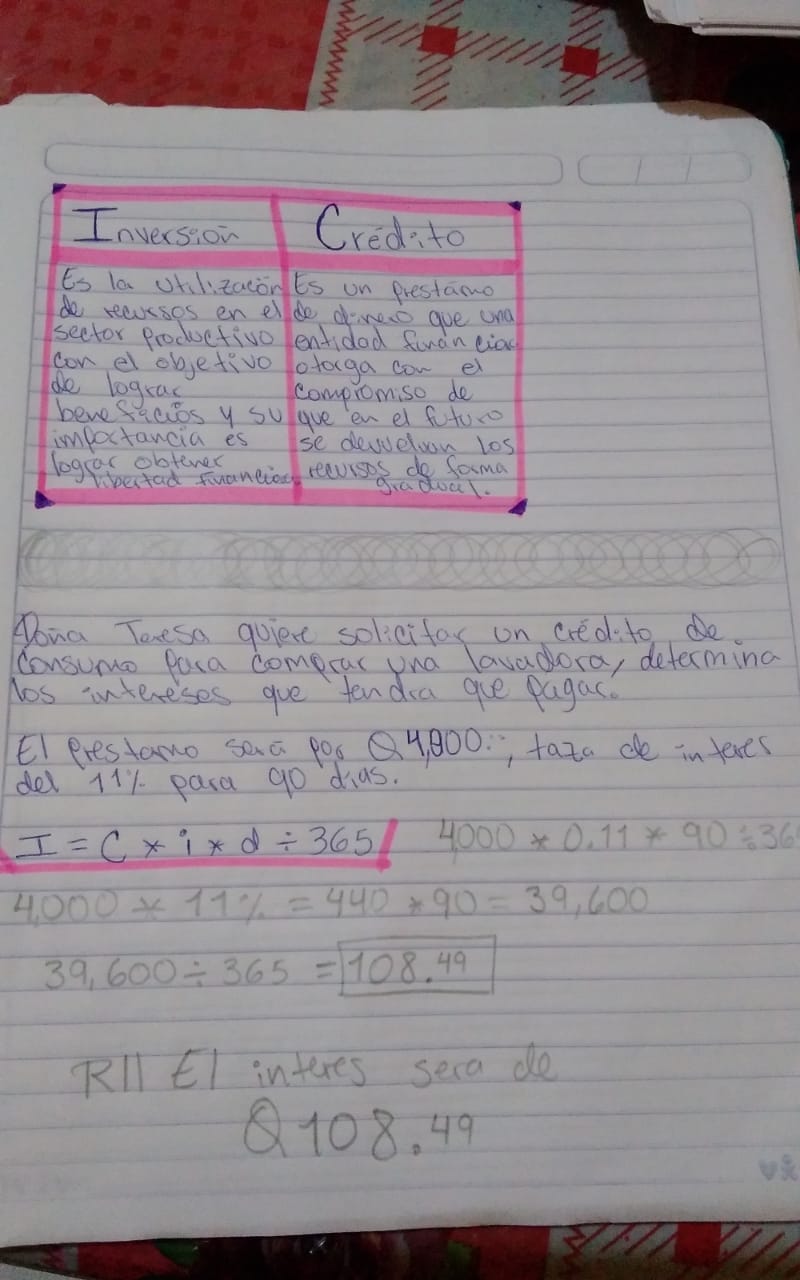 Inversión
Es la utilización
de recursos en el
sector productivo
con el objetivo
de lograr
beneficios y su
importancia es
lograr obtener
libertad financiera
Crédito
Es un prestámo
de dinero que una
entidad financiera
otorga con el
compromiso de
que en el futuro
se devuelvan los
recursos de forma
gradual.
Doña Teresa quiere solicitar un crédito de
consumo para comprar una lavadora, determina
los intereses que tendra que pagar.
El prestamo será por Q4,000.-, taza de interes
del 11% para 90 dias.
I = C * i * d ÷ 365
4000 * 0.11 * 90 ÷ 36
4,000 * 11% = 440 * 90 = 39,600
39,600 ÷ 365 = 108.49
R|| El interes sera de
Q108.49